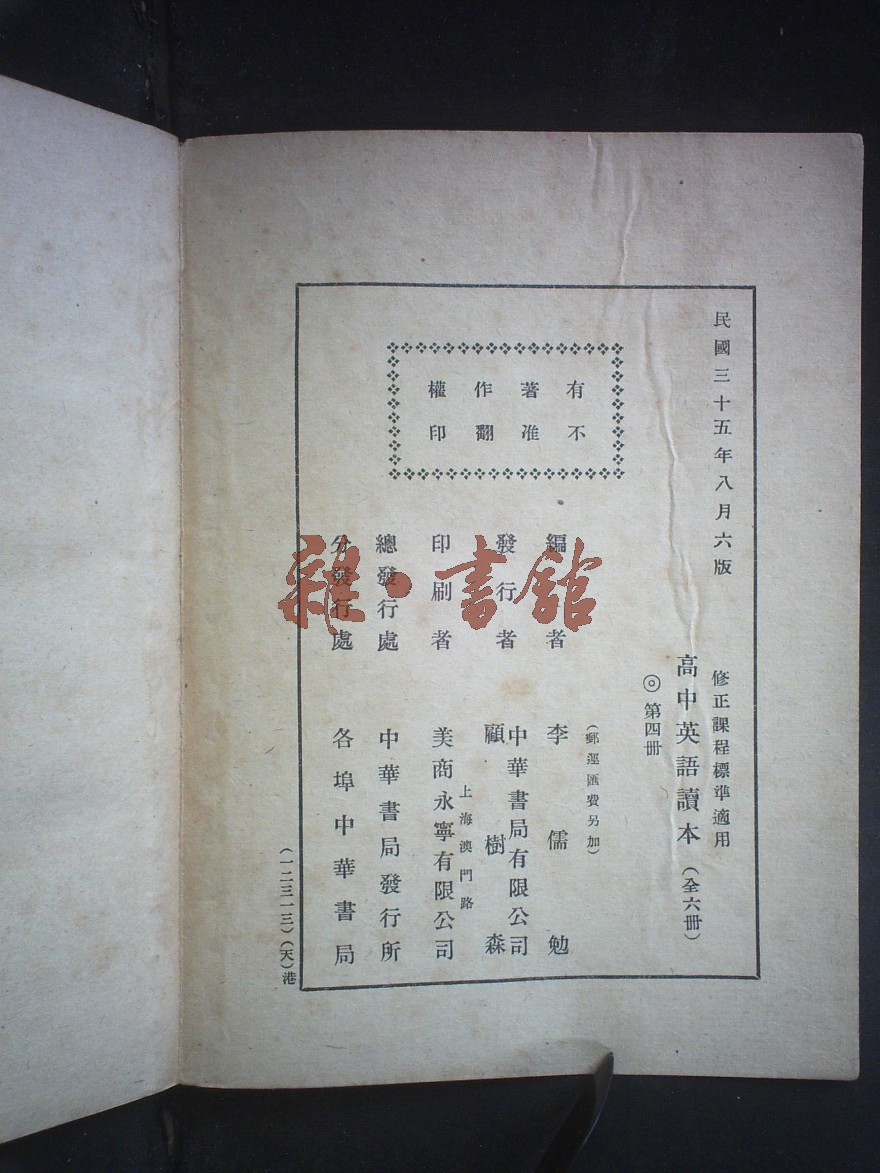 民國三十五年八月六版
修正課程標準適用
高中英語讀本（全六冊）
◎第四冊
（郵運匯費另加）
有著作權
不准翻印
編者 李儒勉
發行者 中華書局有限公司
顧樹森
上海澳門路
印刷者 美商永寧有限公司
總發行處 中華書局發行所
分發行處 各埠中華書局
（一二三一三）（天）港
雜·書館